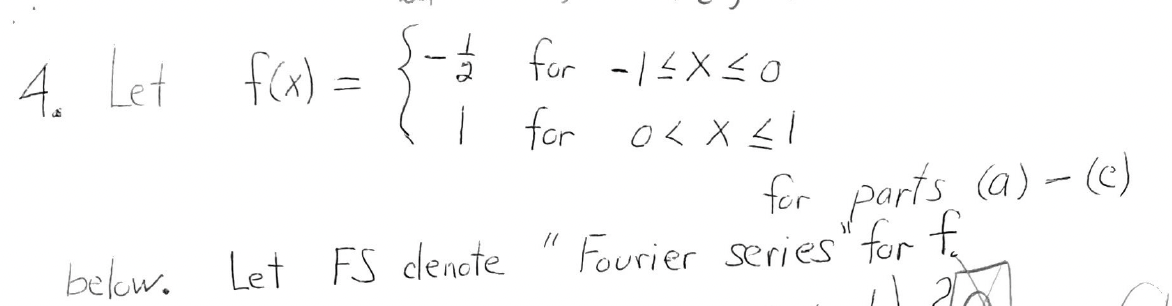 4. Let f(x) = { -1/2 for -1 ≤ x ≤ 0
1 for 0 < x ≤ 1
for parts (a) - (c)
below. Let FS denote "Fourier series" for f.